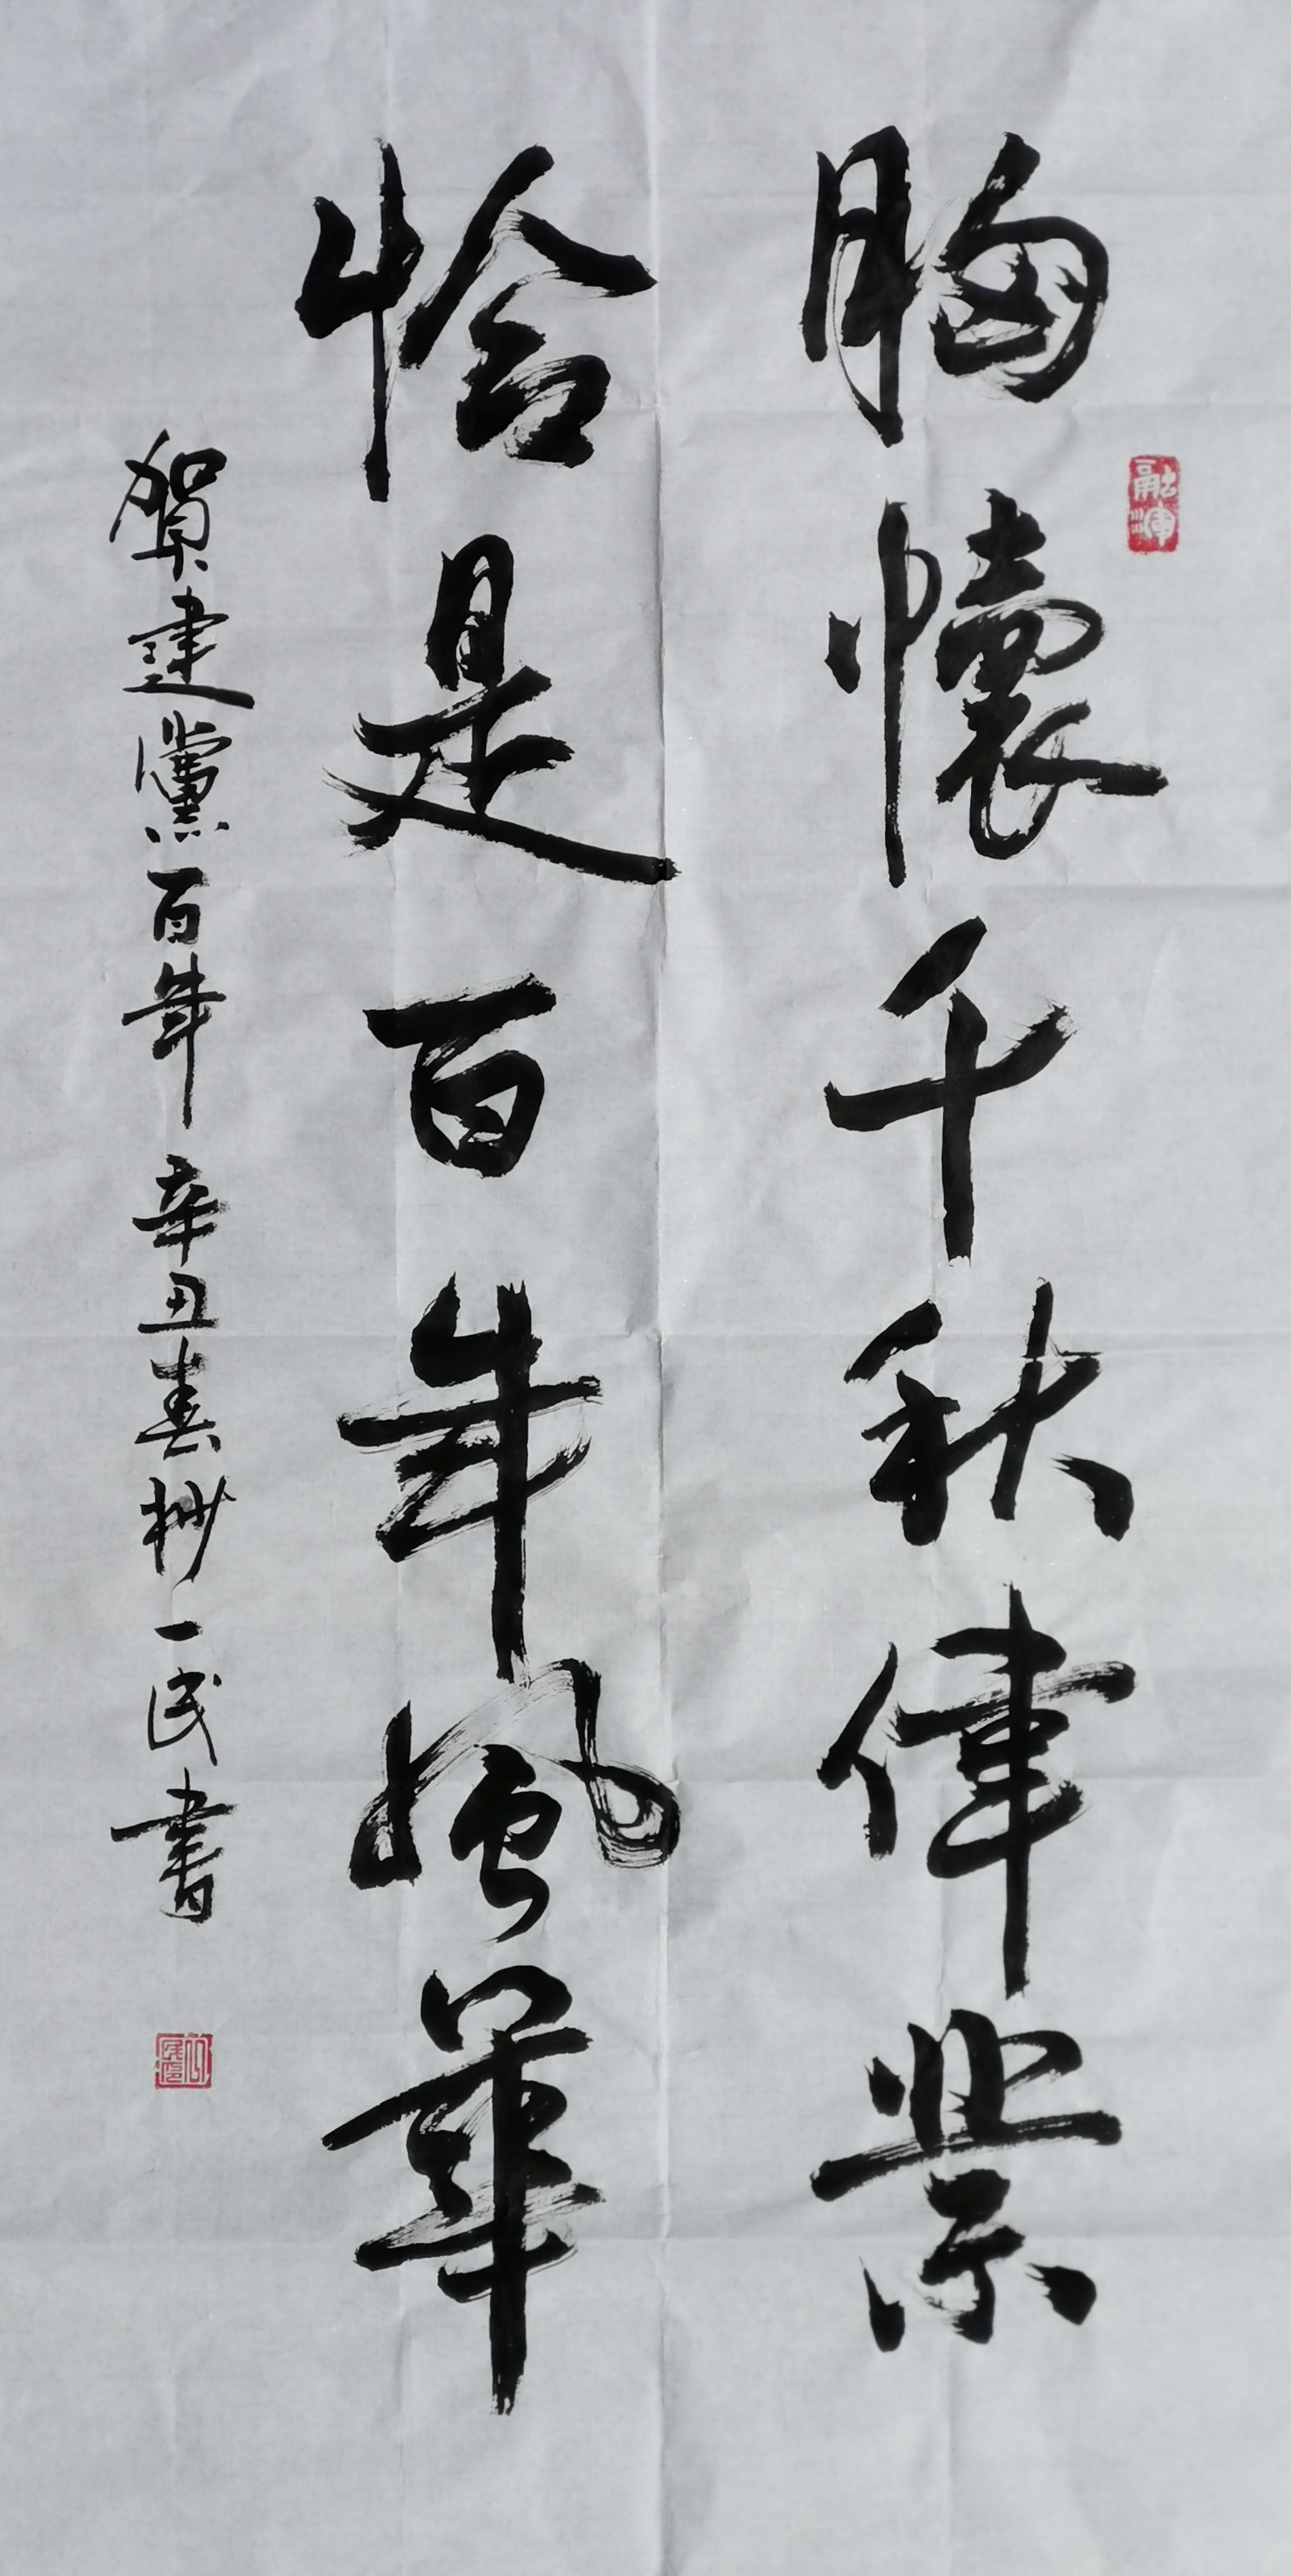 胸懷千秋偉業
恰是百年風華
賀建黨百年 辛丑春抄 一民書